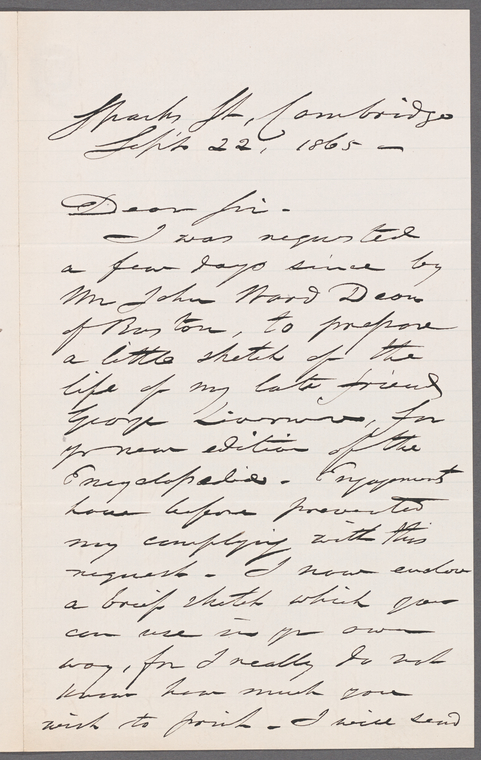 Sparks St, Cambridge
Sept 22, 1865 -
Dear Sir -
I was requested
a few days since by
Mr John Ward Dean
of Boston, to prepare
a little sketch of the
life of my late friend
George Livermore, for
yr new edition of the
Encyclopedia - Engagements
have before prevented
my complying with this
request - I now enclose
a brief sketch which you
can use in yr own
way, for I really do not
know how much you
wish to print - I will send